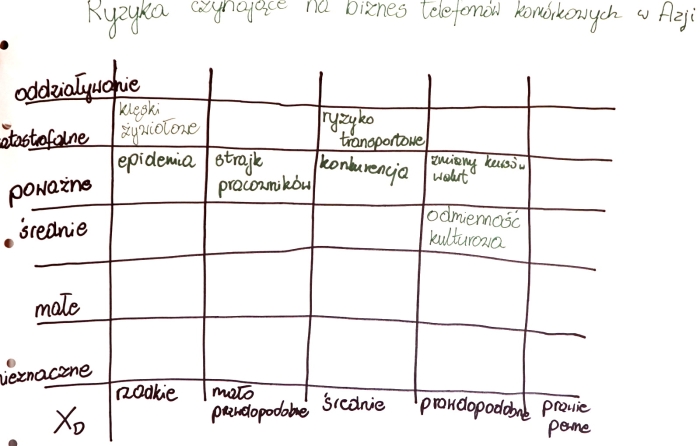 Ryzyka czyhające na biznes telefonów komórkowych w Azji
oddziaływanie
klęski
żywiołowe
ryzyko
transportowe
atastrofalne
epidemia
strajk
pracowników
konkurencja
zmiany kursów
walut
poważne
odmienność
kulturowa
średnie
małe
nieznaczne
rzadkie
mało
prawdopodobne
średnie
prawdopodobne
prawie
pewne
XD